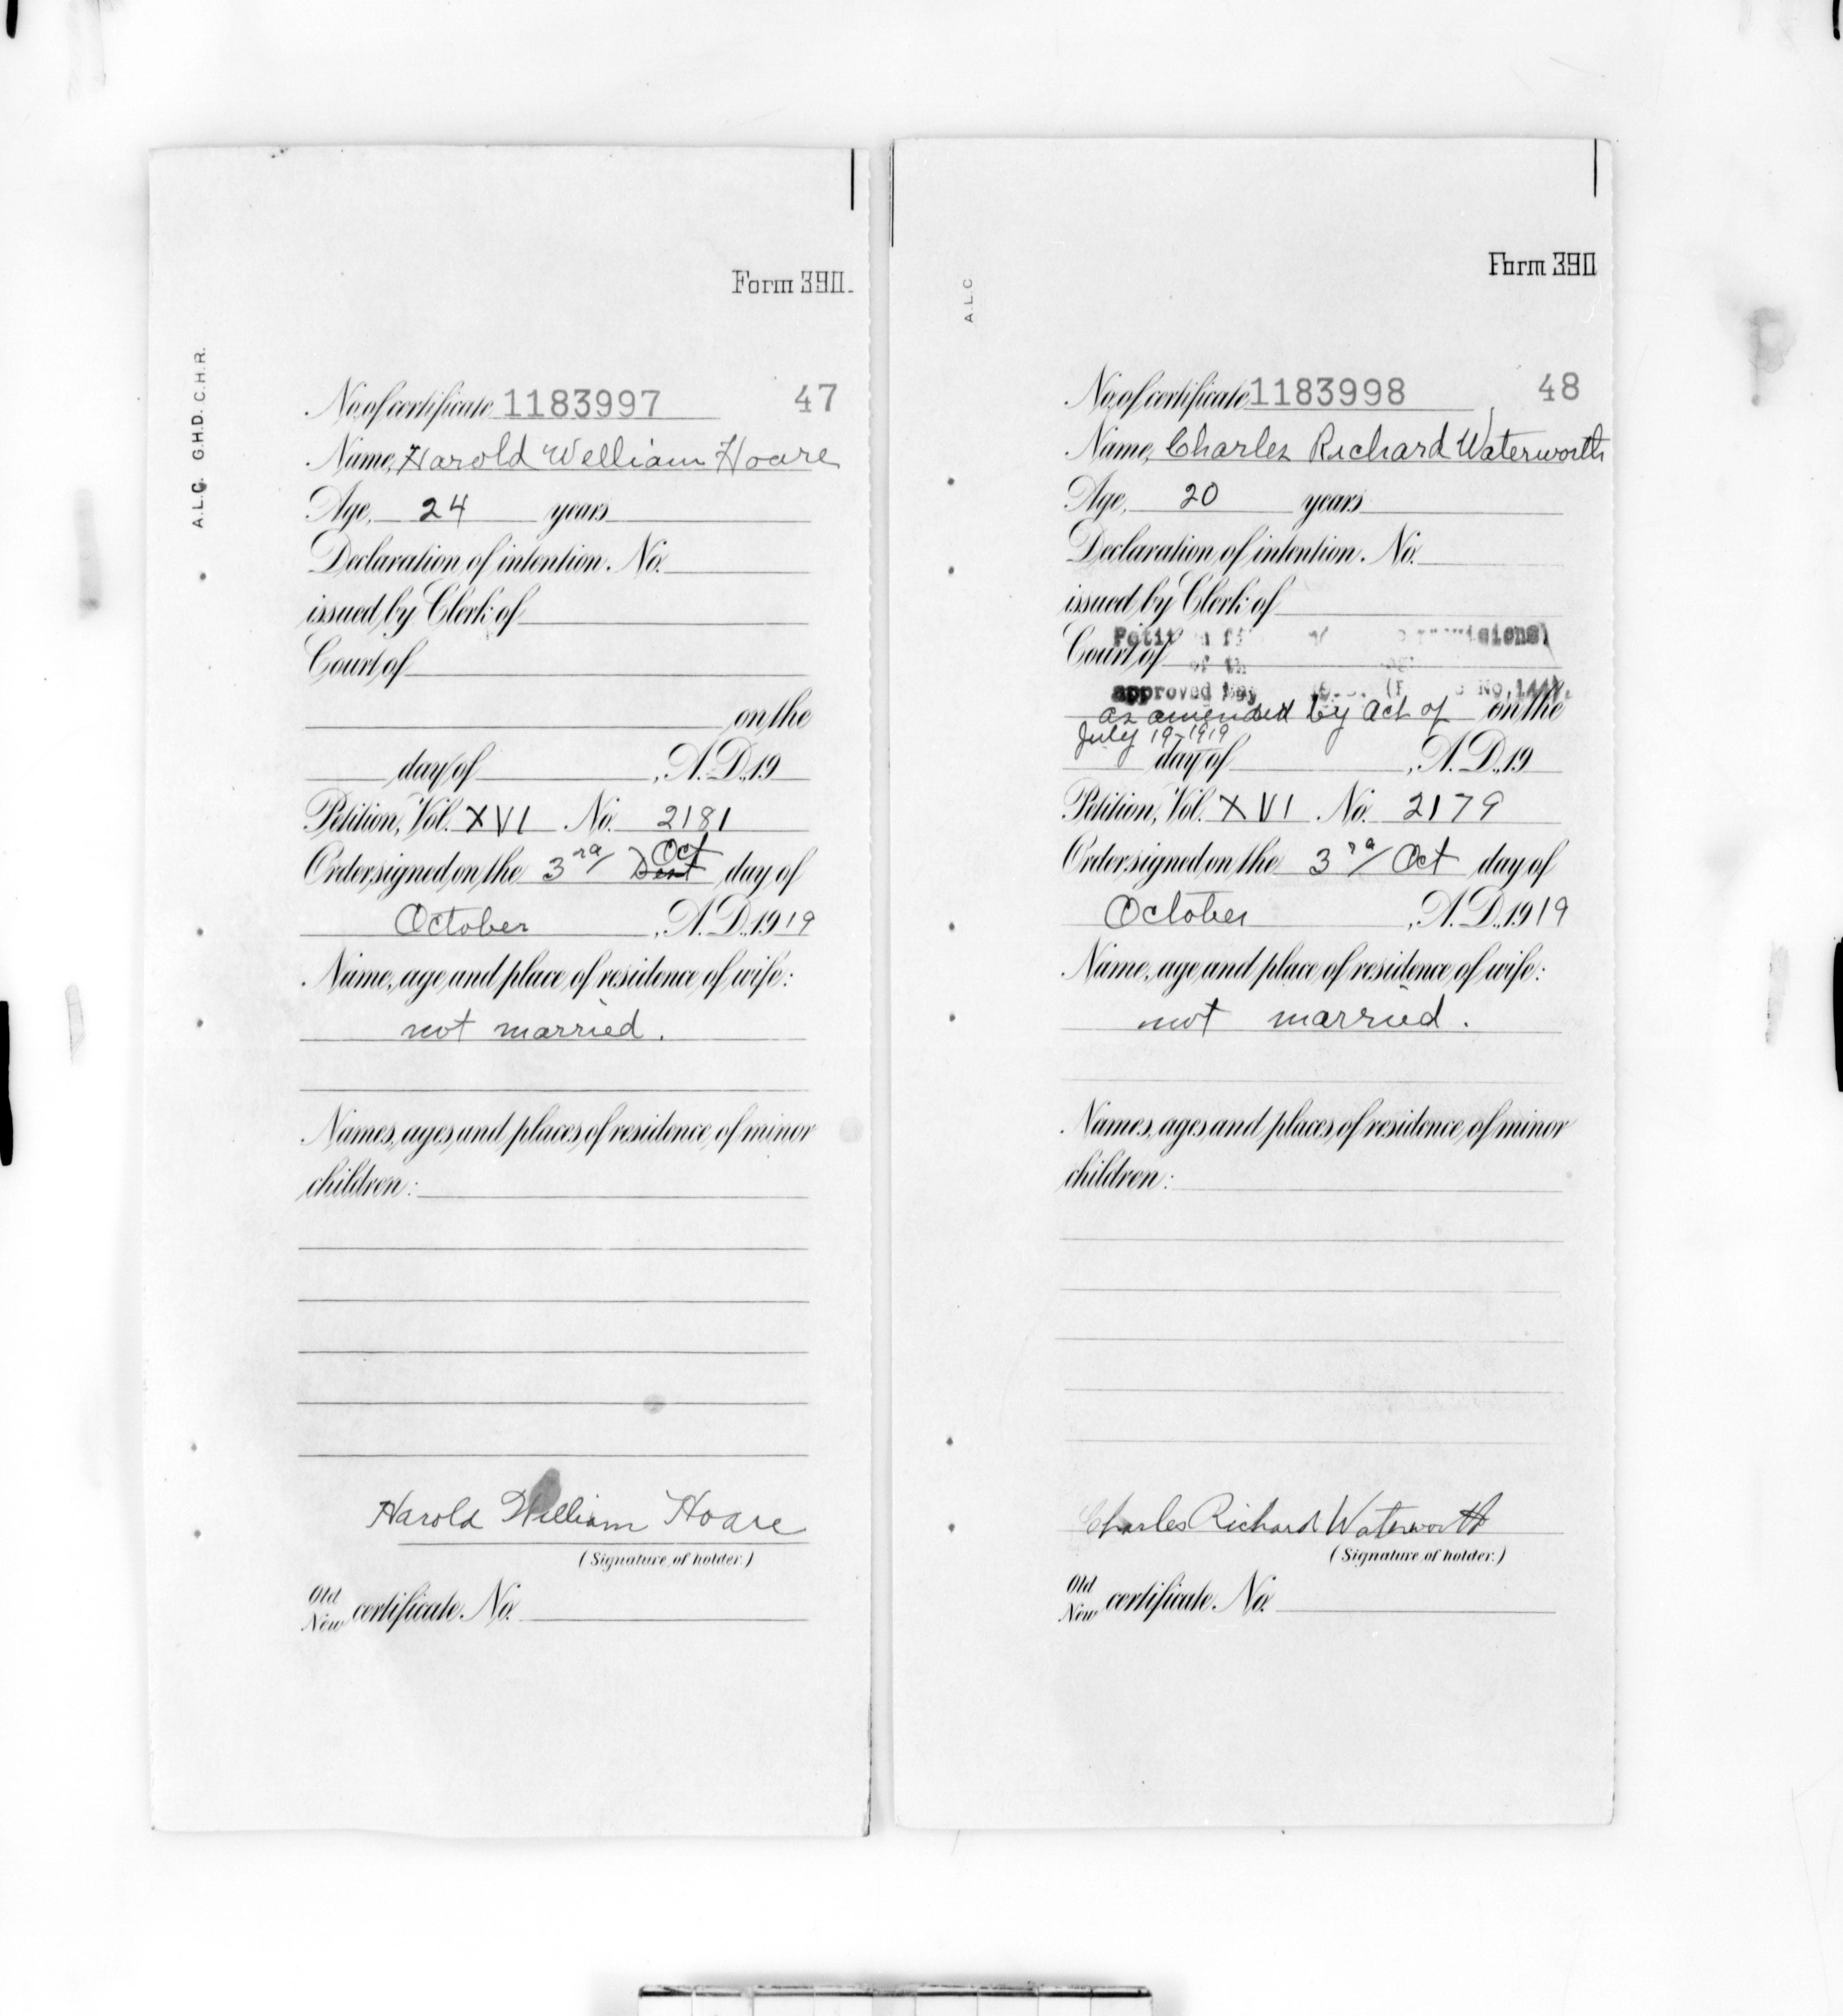 Form 390.
A.L.C. G.H.D. C.H.R.
No. of certificate 1183997 47
Name, Harold William Hoare
Age, 24 years
Declaration of intention. No.
issued by Clerk of
Court of
on the
day of , A.D. 19
Petition, Vol. XVI No. 2181
Order signed on the 3rd Oct day of
October , A.D. 1919
Name, age and place of residence of wife:
not married.
Names, ages and places of residence of minor
children:
Harold William Hoare
(Signature of holder.)
Old
New certificate. No.
Form 390
A.L.C
No. of certificate 1183998 48
Name, Charles Richard Waterworth
Age, 20 years
Declaration of intention. No.
issued by Clerk of
Court of
approved No. 144
as amended by Act of on the
July 19-1919
day of , A.D. 19
Petition, Vol. XVI No. 2179
Order signed on the 3rd Oct day of
October , A.D. 1919
Name, age and place of residence of wife:
not married.
Names, ages and places of residence of minor
children:
Charles Richard Waterworth
(Signature of holder.)
Old
New certificate. No.